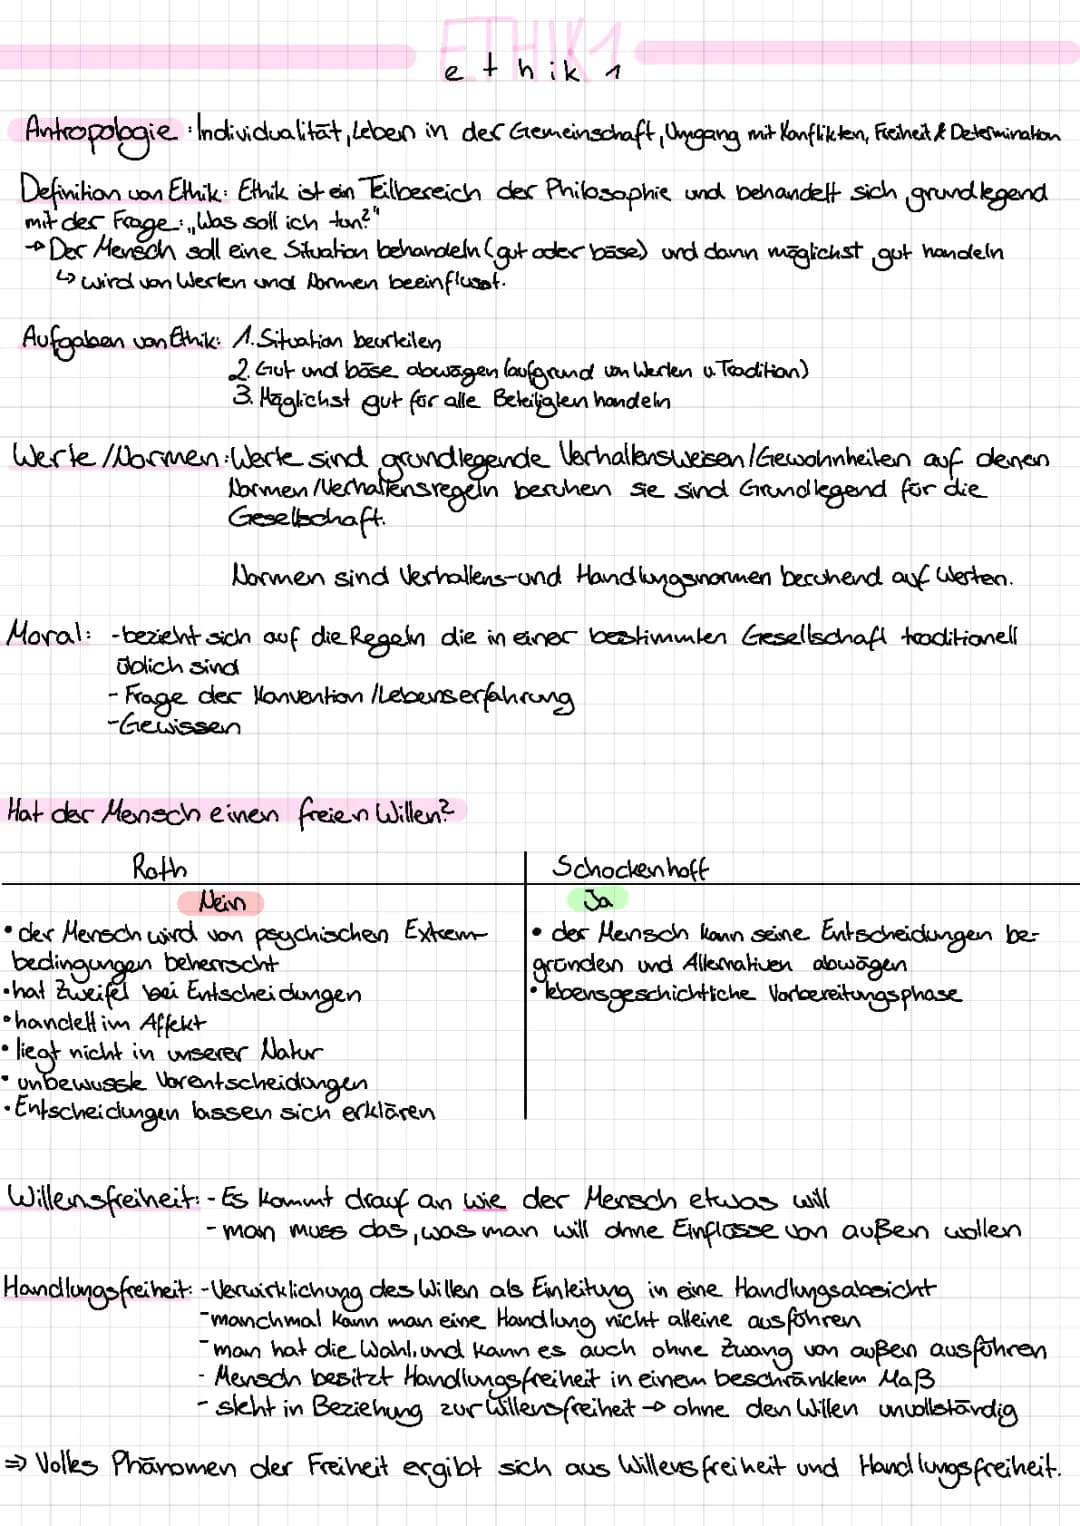 ETHIK1
ethik 1
Antropologie: Individualität, Leben in der Gemeinschaft, Umgang mit Konflikten, Freiheit & Determination
Definition von Ethik: Ethik ist ein Teilbereich der Philosophie und behandelt sich grundlegend
mit der Frage: „Was soll ich tun?"
→ Der Mensch soll eine Situation behandeln (gut oder böse) und dann möglichst gut handeln
↳ wird von Werten und Normen beeinflusst.
Aufgaben von Ethik: 1. Situation beurteilen
2. Gut und böse abwägen (aufgrund von Werten u. Tradition)
3. Möglichst gut für alle Beteiligten handeln
Werte/Normen: Werte sind grundlegende Verhaltensweisen/Gewohnheiten auf denen
Normen/Verhaltensregeln beruhen sie sind Grundlegend für die
Gesellschaft.
Normen sind Verhaltens-und Handlungsnormen beruhend auf Werten.
Moral: -bezieht sich auf die Regeln die in einer bestimmten Gesellschaft traditionell
üblich sind
- Frage der Konvention/Lebenserfahrung
-Gewissen
Hat der Mensch einen freien Willen?
Roth Schockenhoff
Nein Ja
• der Mensch wird von psychischen Extrem-
bedingungen beherrscht
• hat Zweifel bei Entscheidungen
• handelt im Affekt
• liegt nicht in unserer Natur
• unbewusste Vorentscheidungen
• Entscheidungen lassen sich erklären
• der Mensch kann seine Entscheidungen be-
gründen und Alternativen abwägen
• lebensgeschichtliche Vorbereitungsphase
Willensfreiheit: - Es kommt drauf an wie der Mensch etwas will
- man muss das, was man will ohne Einflüsse von außen wollen
Handlungsfreiheit: -Verwirklichung des Willen als Einleitung in eine Handlungsabsicht
-manchmal kann man eine Handlung nicht alleine ausführen
-man hat die Wahl, und kann es auch ohne Zwang von außen ausführen
- Mensch besitzt Handlungsfreiheit in einem beschränktem Maß
- steht in Beziehung zur Willensfreiheit → ohne den Willen unvollständig
⇒ Volles Phänomen der Freiheit ergibt sich aus Willensfreiheit und Handlungsfreiheit.